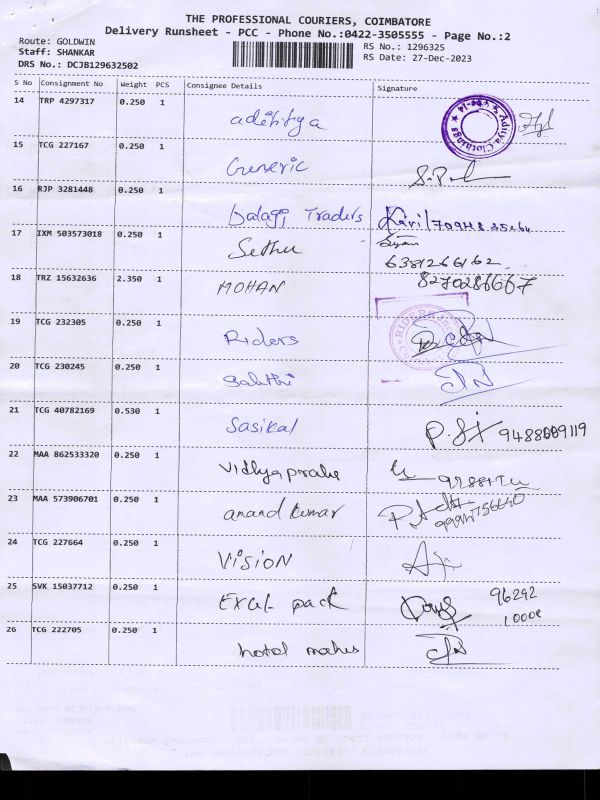 THE PROFESSIONAL COURIERS, COIMBATORE
Delivery Runsheet - PCC - Phone No.:0422-3505555 - Page No.:2
Route: GOLDWIN
Staff: SHANKAR
DRS No.: DCJB129632502
RS No.: 1296325
RS Date: 27-Dec-2023
S No Consignment No Weight PCS Consignee Details Signature
14 TRP 4297317 0.250 1 adehitya
Aditya Clothings
15 TCG 227167 0.250 1 Generic
16 RJP 3281448 0.250 1 balaji Traders
17 IXM 503573018 0.250 1 Sethu 6381266162
18 TRZ 15632636 2.350 1 MOHAN 8270286667
19 TCG 232305 0.250 1 Riders
RIDERS
20 TCG 230245 0.250 1 Sakthi
21 TCG 40782169 0.530 1 Sasikal
22 MAA 862533320 0.250 1 Vidhyaprabe
23 MAA 573906701 0.250 1 anand kumar
24 TCG 227664 0.250 1 VISION
25 SVK 15037712 0.250 1 Excel pack 96292
26 TCG 222705 0.250 1 hotel mahes